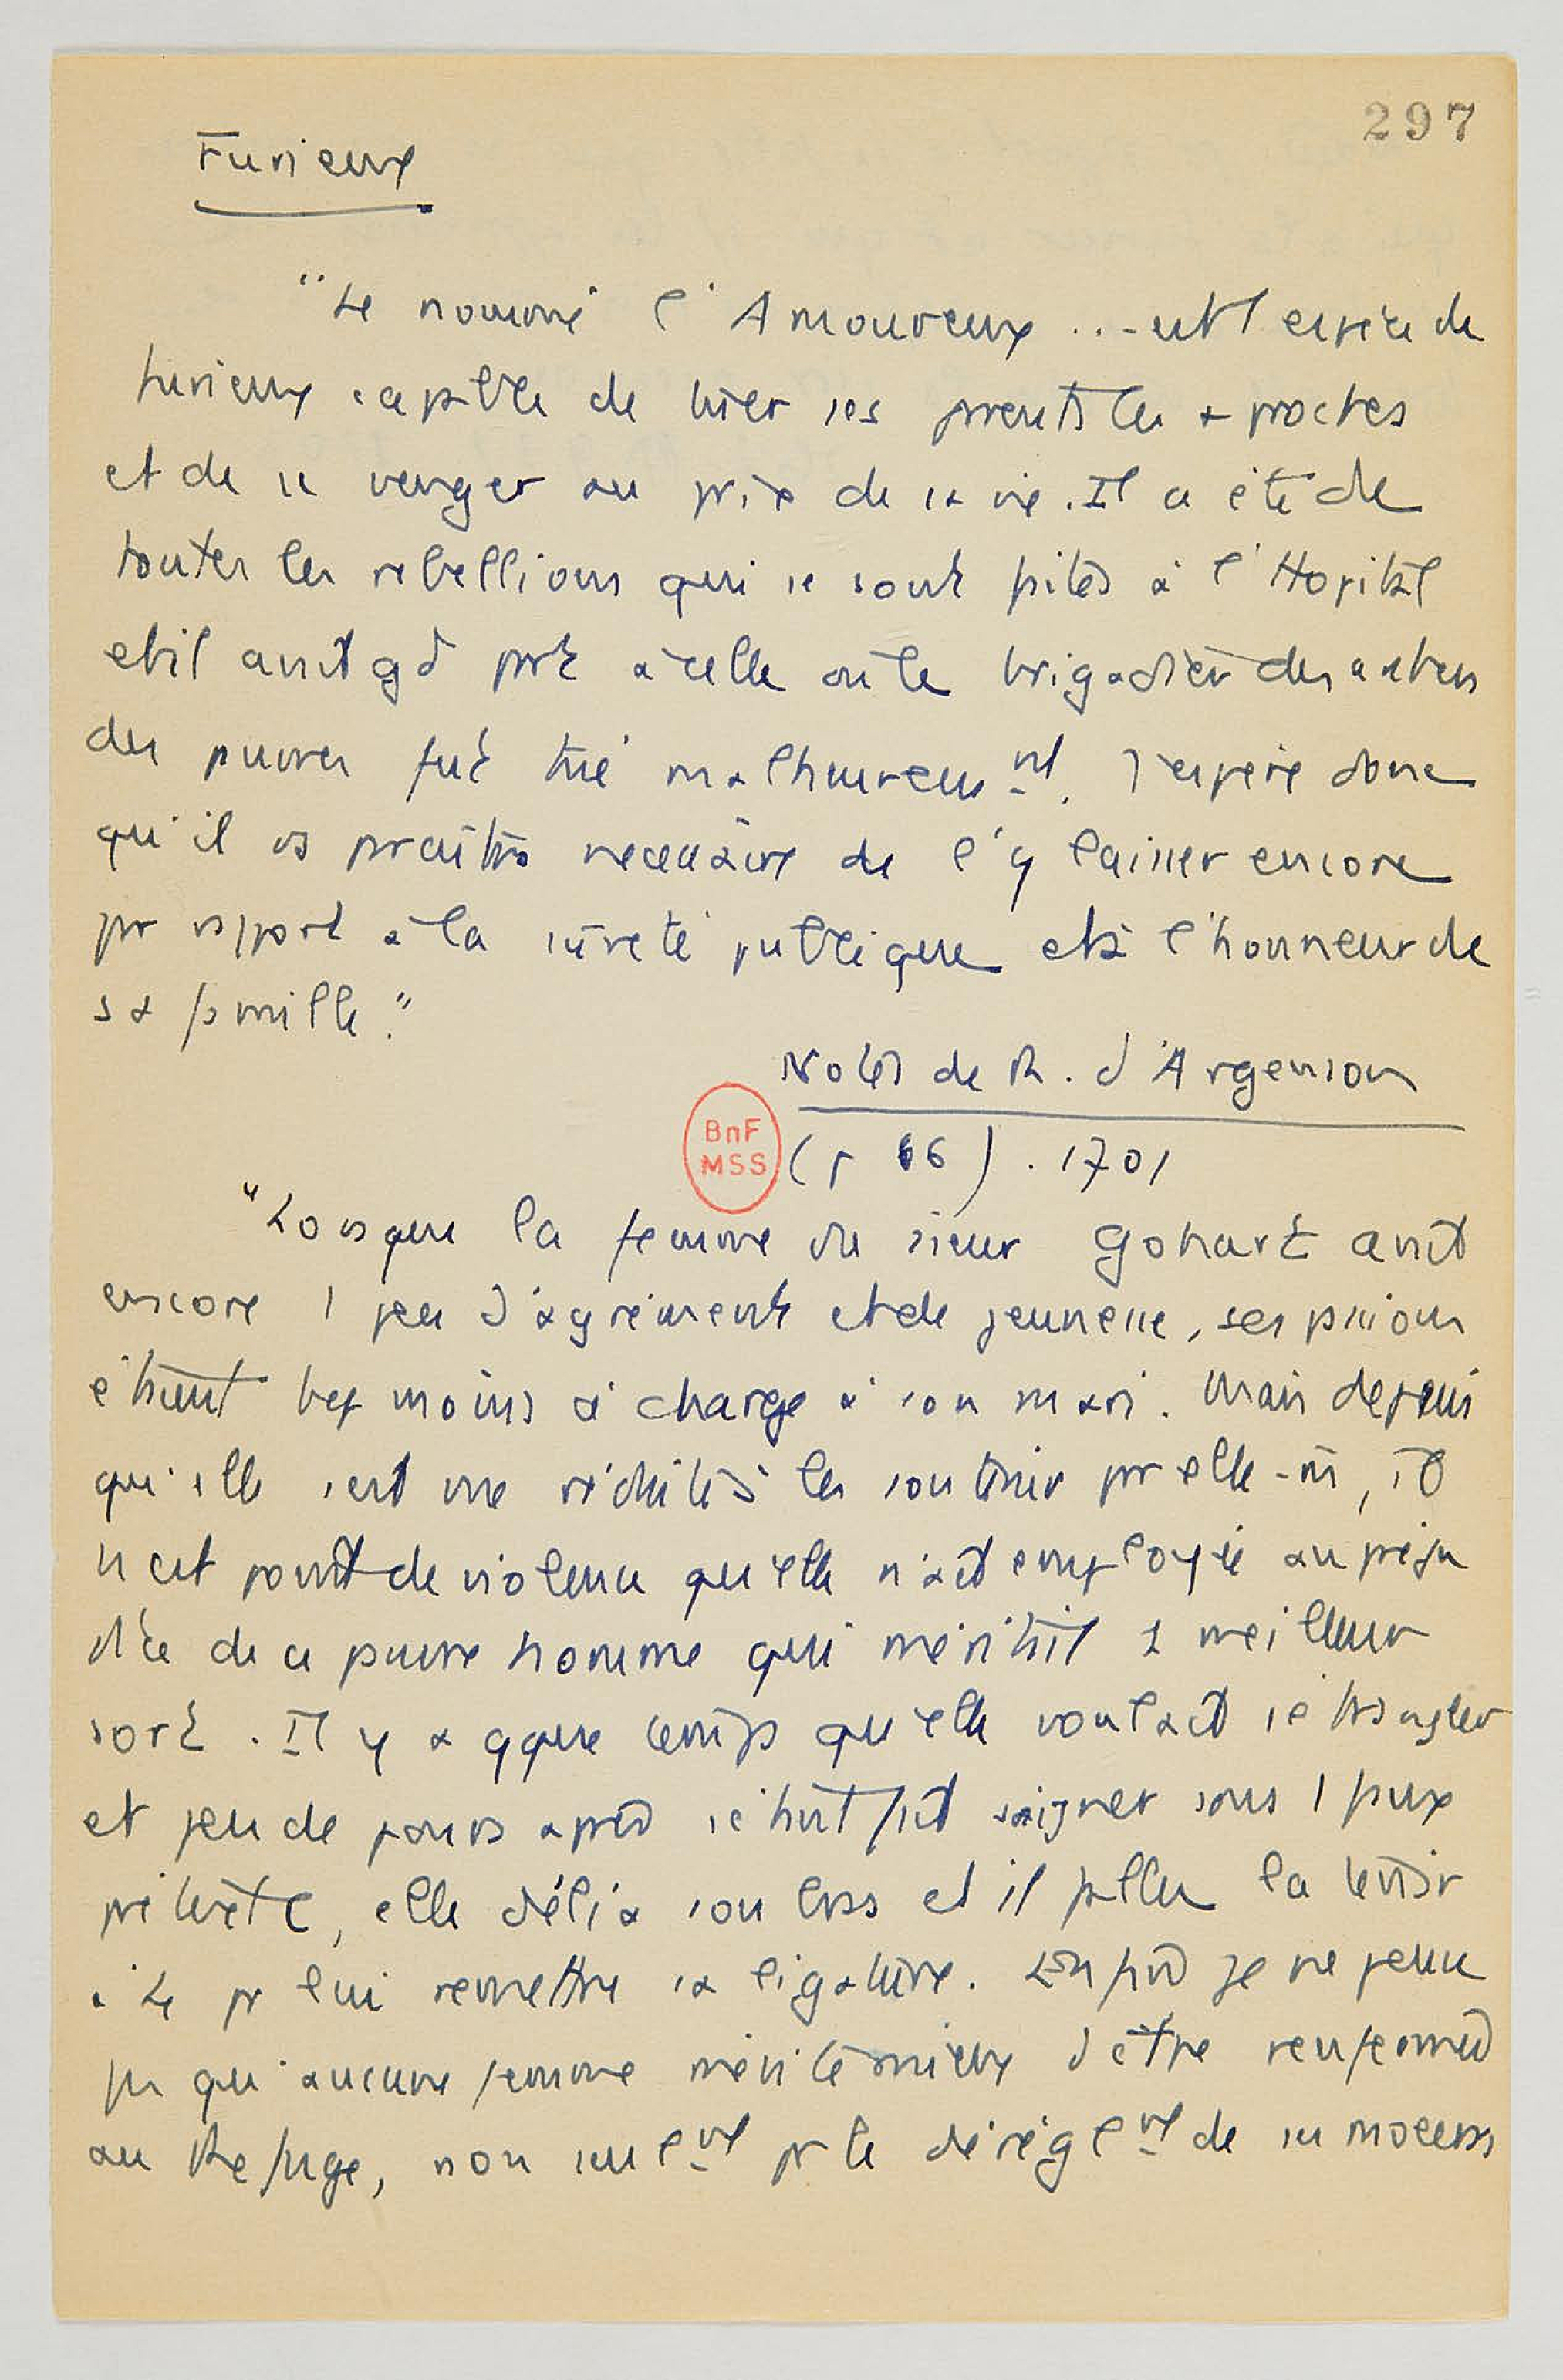 297
Furieux
"Le nommé l'Amoureux ... est 1 espèce de
furieux capable de tuer ses parents les + proches
et de se venger au prix de sa vie. Il a été de
toutes les rebellions qui se sont faites à l'Hopital
et il avait gd part à celle où le brigadier des archers
des pauvres fut tué malheureusnt. J'espère donc
qu'il vs paraîtra necessaire de l'y laisser encore
par rapport à la sûreté publique et à l'honneur de
sa famille."
Notes de R. d'Argenson
(p 66). 1701
BnF
MSS
"Lorsque la femme du sieur Gohart avait
encore 1 peu d'agréments et de jeunesse, ses passions
étaient bcp moins à charge à son mari. Mais depuis
qu'elle s'est vue réduite à les soutenir par elle-m, il
n'est point de violence qu'elle n'ait employée au préju
dice de ce pauvre homme qui méritait 1 meilleur
sort. Il y a qque temps qu'elle voulait s'étrangler
et peu de jours après s'étant fait saigner sous 1 faux
prétexte, elle délia son bras et il fallut la tenir
à 4 pr lui remettre sa ligature. Enfin je ne pense
pas qu'aucune femme mérite mieux d'être renfermée
au Refuge, non seulnt pr le déréglnt de ses moeurs